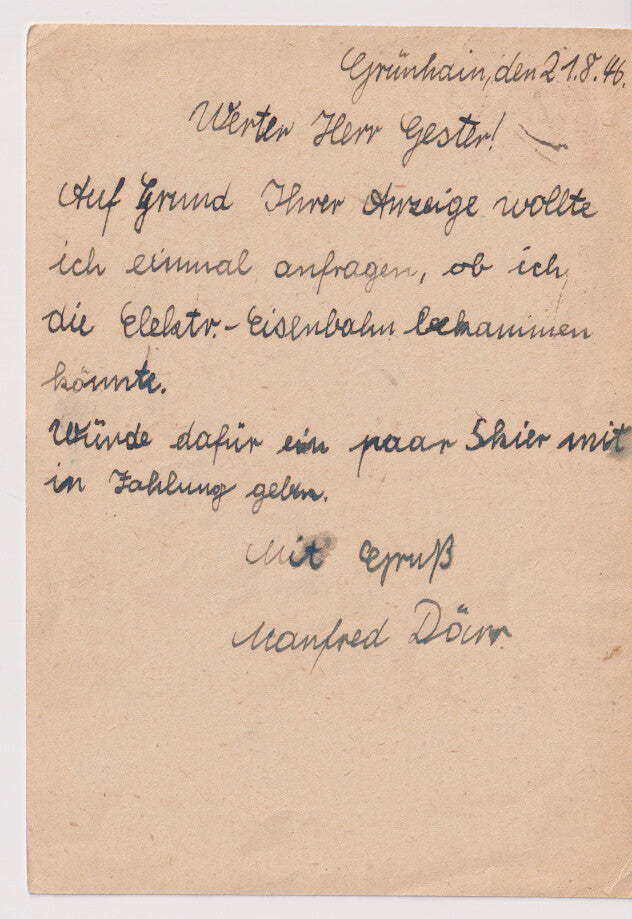 Grünhain, den 21.8.46.
Werter Herr Gester!
Auf Grund Ihrer Anzeige wollte
ich einmal anfragen, ob ich
die Elektr.-Eisenbahn bekammen
könnte.
Würde dafür ein paar Skier mit
in Zahlung geben.
Mit Gruß
Manfred